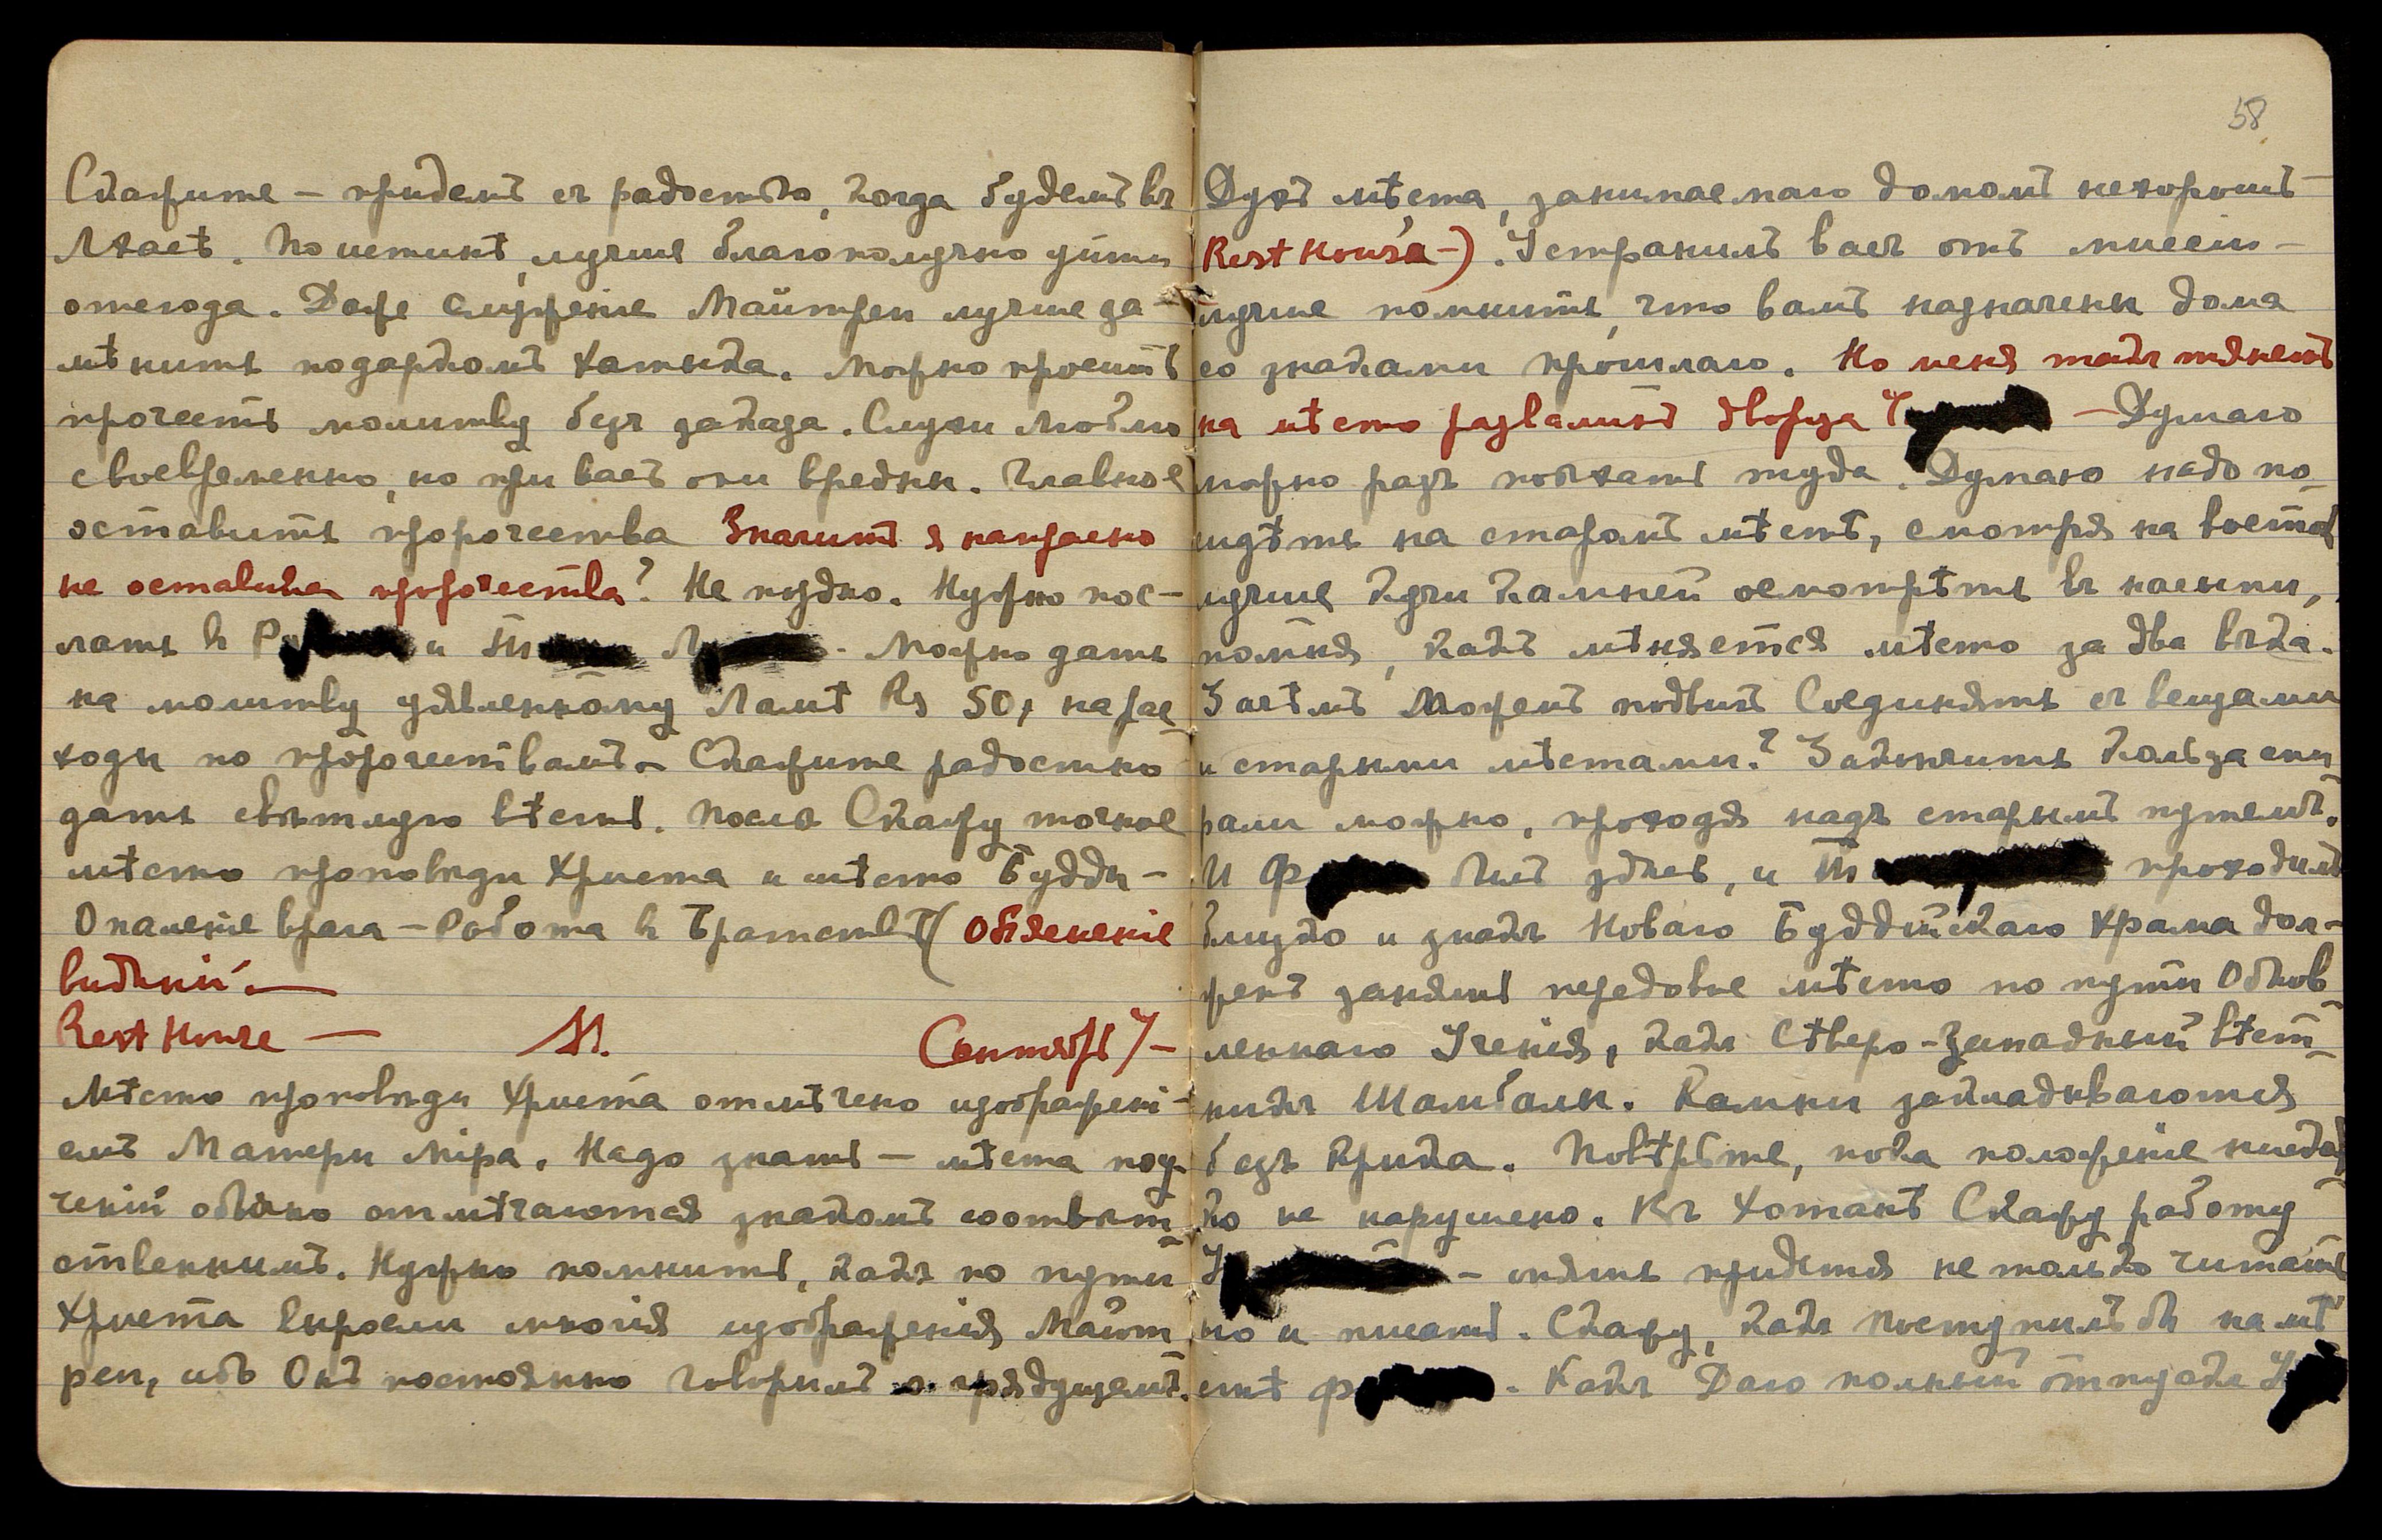 Скажите – придемъ съ радостью, когда будемъ въ
Лхасѣ. По истинѣ, лучше благополучно уйти
отсюда. Даже служеніе Майтреи лучше за-
мѣнить подаркомъ хатыка. Можно просить
прочесть молитву безъ заказа. Слухи люблю
своевременно, но при васъ они вредны. Главное
оставить пророчества Значитъ я напрасно
не оставила пророчества? Не поздно. Нужно пос-
лать к Р и Т Л. Можно дать
на молитву удивленному Ламѣ Rs 50, на рас
ходы по пророчествамъ. Скажите радостно
дать свѣтлую вѣсть. После Скажу точное
мѣсто проповѣди Христа и мѣсто Будды –
Опаленіе врага – Работа в Братствѣ (Объясненіе
видѣній. —
Rest House — М. Сентябрь 7 –
Мѣсто проповѣди Христа отмѣчено изображені-
емъ Матери Міра. Надо знать – мѣста поу-
ченій обычно отмѣчаются знакомъ соотвѣт
ственнымъ. Нужно помнить, какъ по пути
Христа выросли многія изображенія Майт
реи, ибо Онъ постоянно говорилъ о грядущемъ.
58
Духъ мѣста, занимаемаго домомъ нехорошъ –
Rest House'a –). Устранилъ васъ отъ миссіи –
лучше помнить, что вамъ назначены дома
со знаками прошлаго. Но меня такъ тянетъ
на мѣсто развалинъ дворца – Думаю
можно разъ поѣхать туда. Думаю надо по-
сидѣть на старомъ мѣстѣ, смотря на востокъ
лучше кучи камней осмотрѣть въ наемни,
помня, какъ мѣняется мѣсто за два вѣка.
Засѣмъ Можетъ подвигъ Соединять съ вещами
и старыми мѣстами? Замкнуть кольца спи
рали можно, проходя надъ старымъ путемъ.
И Ф былъ здѣсь, и Т проходилъ
близко и знакъ Новаго Буддійскаго Храма дол-
женъ занять передовое мѣсто по пути Обнов
леннаго Ученія, какъ Сѣверо-Западный вѣст
никъ Шамбалы. Камни закладываются
безъ крика. Повѣрьте, пока положеніе нисколь
ко не нарушено. Въ Хотанѣ Скажу работу
У – опять придется не только читать
но и писать. Скажу, какъ поступилъ бы на мѣ
стѣ Ф. Какъ Даю полный отпускъ У